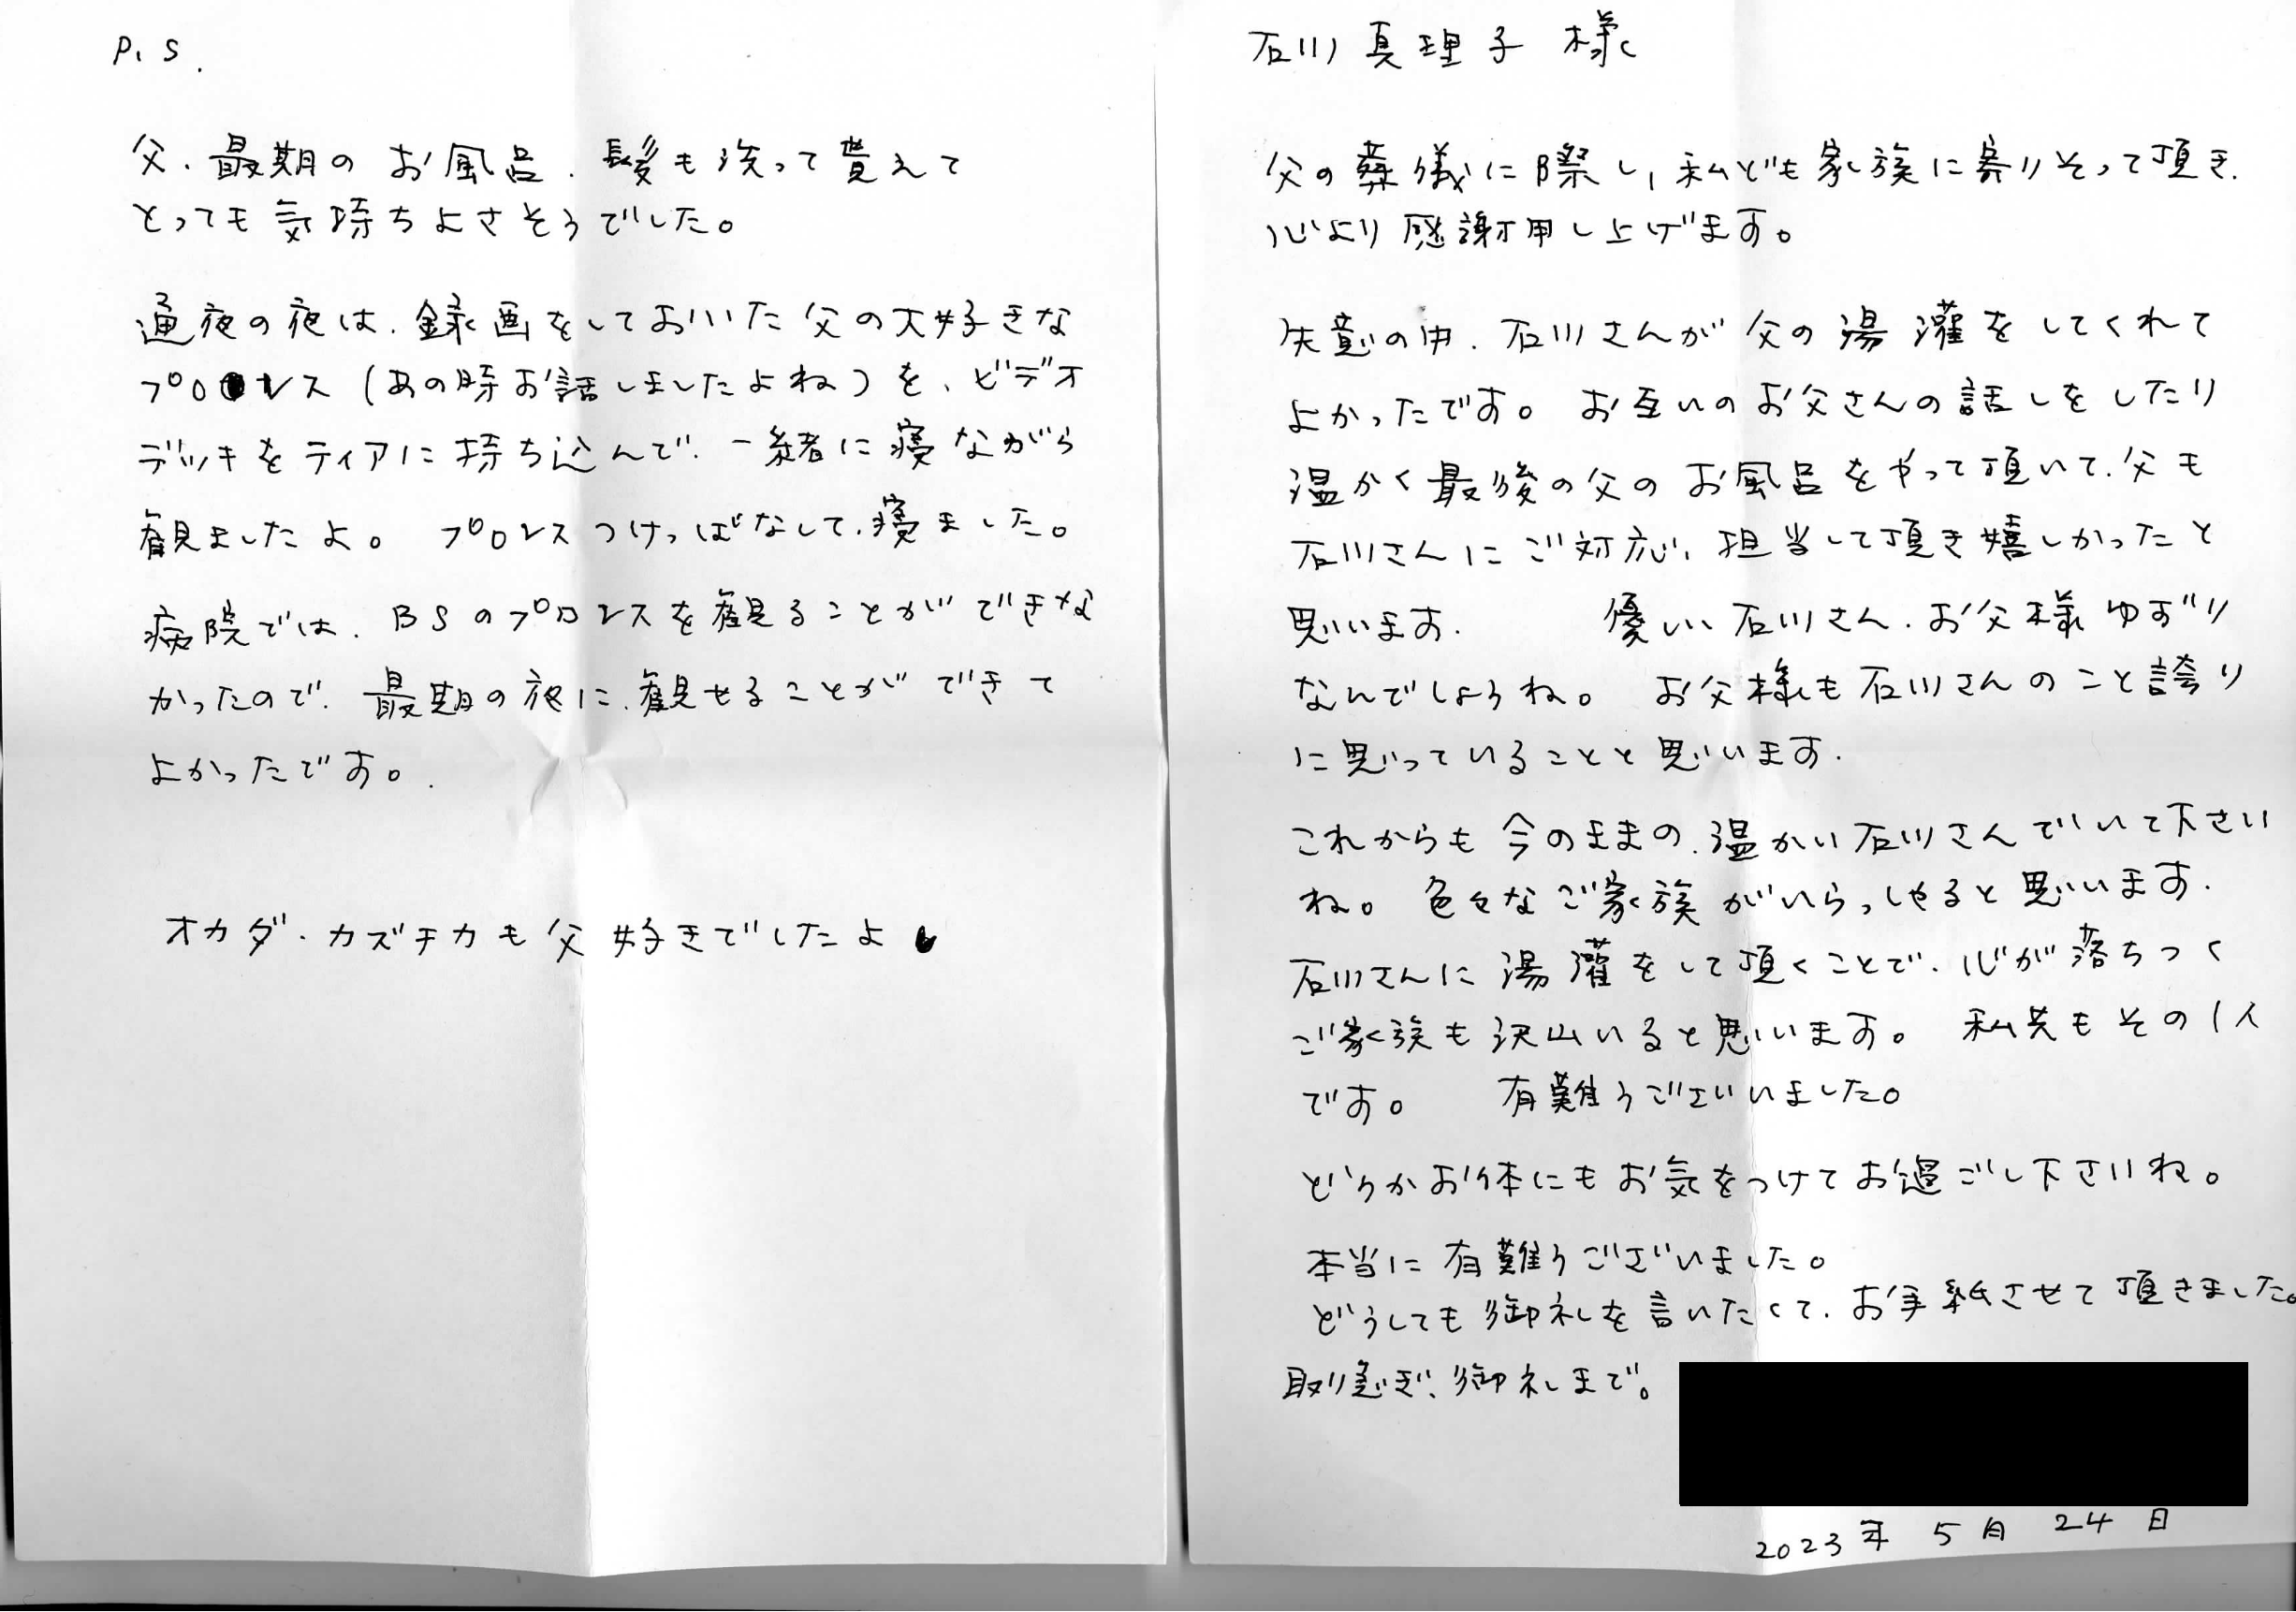 石川真理子 様
父の葬儀に際し、私ども家族に寄りそって頂き、
心より感謝申し上げます。
失意の中、石川さんが父の湯灌をしてくれて
よかったです。お互いのお父さんの話しをしたり
温かく最後の父のお風呂をやって頂いて、父も
石川さんにご対応、担当して頂き嬉しかったと
思います。 優しい石川さん、お父様ゆずり
なんでしょうね。 お父様も石川さんのこと誇り
に思っていることと思います。
これからも今のままの、温かい石川さんでいて下さい
ね。色々なご家族がいらっしゃると思います。
石川さんに湯灌をして頂くことで、心が落ちつく
ご家族も沢山いると思います。 私共もその1人
です。 有難うございました。
どうかお体にもお気をつけてお過ごし下さいね。
本当に有難うございました。
どうしても御礼を言いたくて、お手紙させて頂きました。
取り急ぎ、御礼まで。
2023年 5月 24日
P.S.
父、最期のお風呂、髪も洗って貰えて
とっても気持ちよさそうでした。
通夜の夜は、録画をしておいた父の大好きな
プロレス(あの時お話しましたよね)を、ビデオ
デッキをティアに持ち込んで、一緒に寝ながら
観ましたよ。プロレスつけっぱなして、寝ました。
病院では、BSのプロレスを観ることができな
かったので、最期の夜に、観せることができて
よかったです。
オカダ・カズチカも父好きでしたよ